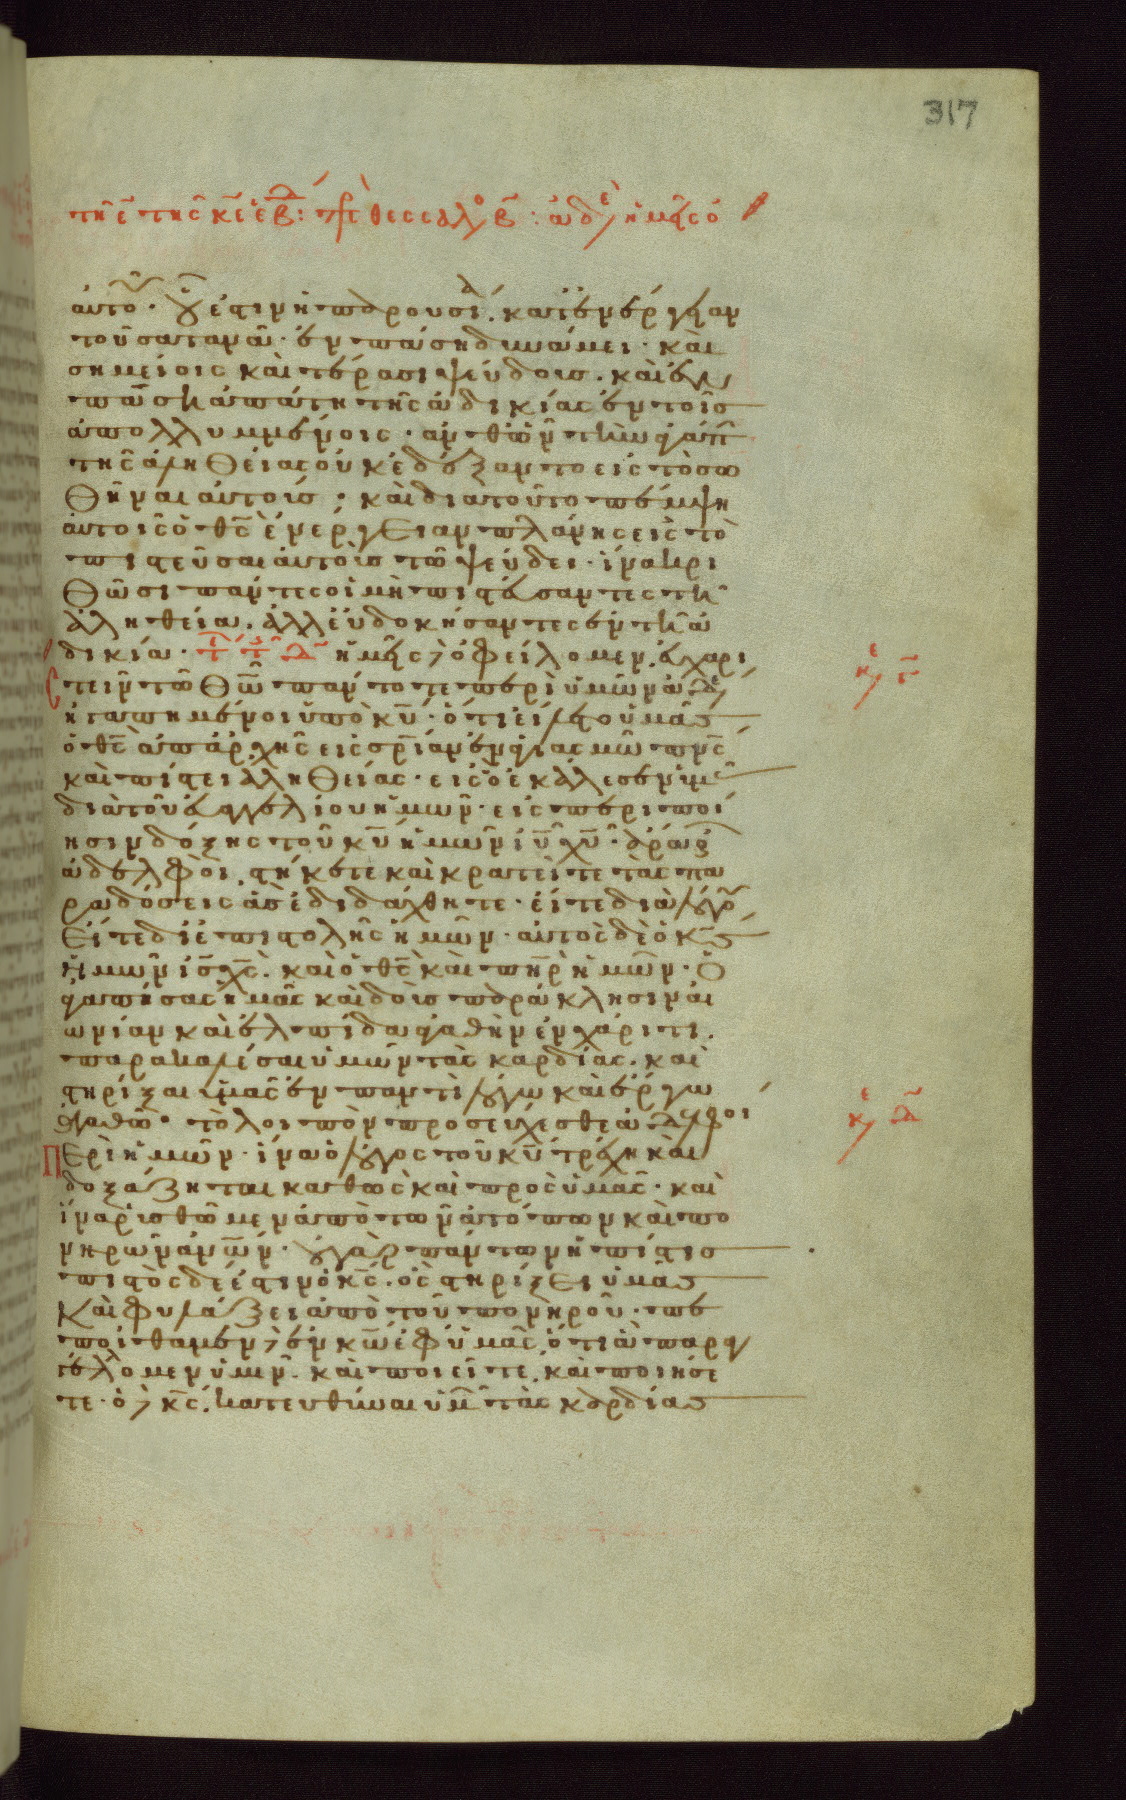 317
τῆ ε̄ τῆς κ̄ε ἑβδ: πρ θεσσαλ β̄: ἀδε ἡμεῖς ὀ
αὐτοῦ. οὗ ἐστιν ἡ παρουσία. κατ' ἐνέργειαν
τοῦ σατανᾶ. ἐν πάση δυνάμει. καὶ
σημείοις καὶ τέρασι ψεύδους. καὶ ἐν
πάση ἀπάτη τῆς ἀδικίας ἐν τοῖς
ἀπολλυμμένοις. ἀνθ' ὧν τὴν ἀγάπ
τῆς ἀληθείας οὐκ ἐδέξαντο εἰς τὸ σω
θῆναι αὐτούς. καὶ διατοῦτο πέμψη
αὐτοῖς ὁ θ̄ς ἐνέργειαν πλάνης εἰς τὸ
πιστεῦσαι αὐτοὺς τῶ ψεύδει. ἵνα κρι
θῶσι πάντες οἱ μὴ πιστεύσαντες τῆ
ἀληθεία. ἀλλ' εὐδοκήσαντες ἐν τῆ ἀ
δικία. ἡμεῖς δὲ ὀφείλομεν εὐχαρι
στεῖν τῶ θ̄ω πάντοτε περὶ ὑμῶν ἀδε
ἠγαπημένοι ὑπὸ κ̄υ. ὅτι εἵλετο ὑμᾶς
ὁ θ̄ς ἀπ' ἀρχῆς εἰς σ̄ρίαν ἐν ἁγιασμῶ π̄νς
καὶ πίστει ἀληθείας. εἰς ὃ ἐκάλεσεν ὑμᾶς
διὰ τοῦ εὐαγγελίου ἡμῶν. εἰς περιποί
ησιν δόξης τοῦ κ̄υ ἡμῶν ῑυ χ̄υ. ἄρα οὖν
ἀδελφοὶ. στήκετε καὶ κρατεῖτε τὰς πα
ραδόσεις ἃς ἐδιδάχθητε. εἴτε διὰ λόγου
εἴτε δι' ἐπιστολῆς ἡμῶν. αὐτὸς δὲ ὁ κ̄ς
ἡμῶν ῑς χ̄ς. καὶ ὁ θ̄ς καὶ π̄ηρ ἡμῶν. ὁ
ἀγαπήσας ἡμᾶς καὶ δοὺς παράκλησιν αἰ
ωνίαν καὶ ἐλπίδα ἀγαθὴν ἐν χάριτι.
παρακαλέσαι ὑμῶν τὰς καρδίας. καὶ
στηρίξαι ὑμᾶς ἐν παντὶ λόγω καὶ ἔργω
ἀγαθῶ. τὸ λοιπὸν προσεύχεσθε ἀδελφοὶ
περὶ ἡμῶν. ἵνα ὁ λόγος τοῦ κ̄υ τρέχη καὶ
δοξάζηται καθὼς καὶ πρὸς ὑμᾶς. καὶ
ἵνα ῥυσθῶμεν ἀπὸ τῶν ἀτόπων καὶ πο
νηρῶν ἀν̄ων. οὐ γὰρ πάντων ἡ πίστις
πιστὸς δέ ἐστιν ὁ κ̄ς. ὃς στηρίξει ὑμᾶς
καὶ φυλάξει ἀπὸ τοῦ πονηροῦ. πε
ποίθαμεν δὲ ἐν κ̄ω ἐφ' ὑμᾶς ὅτι ἃ παραγ
γέλλομεν ὑμῖν. καὶ ποιεῖτε. καὶ ποιήσε
τε. ὁ δὲ κ̄ς. κατευθύναι ὑμῶν τὰς καρδίας